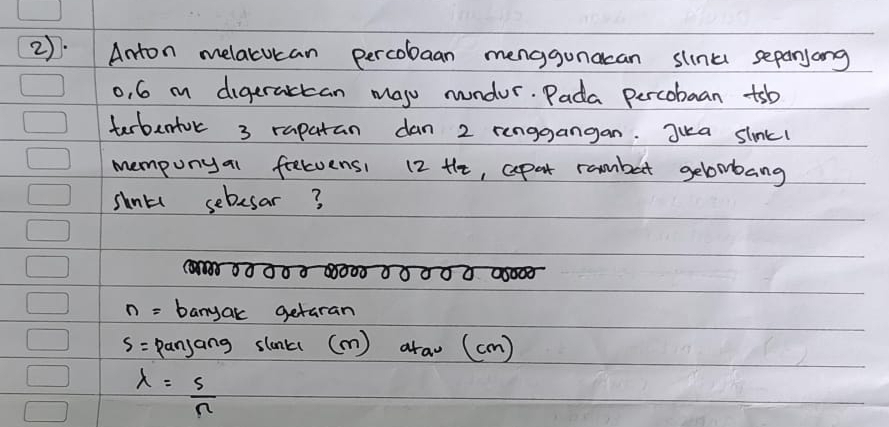 2). Anton melakukan percobaan menggunakan slinki sepanjang
0,6 m digerakkan maju mundur. Pada percobaan tsb
terbentuk 3 rapatan dan 2 renggangan. Jika slinki
mempunyai frekuensi 12 Hz, cepat rambat gelombang
slinki sebesar ?
n = banyak getaran
s = panjang slinki (m) atau (cm)
λ = s
n